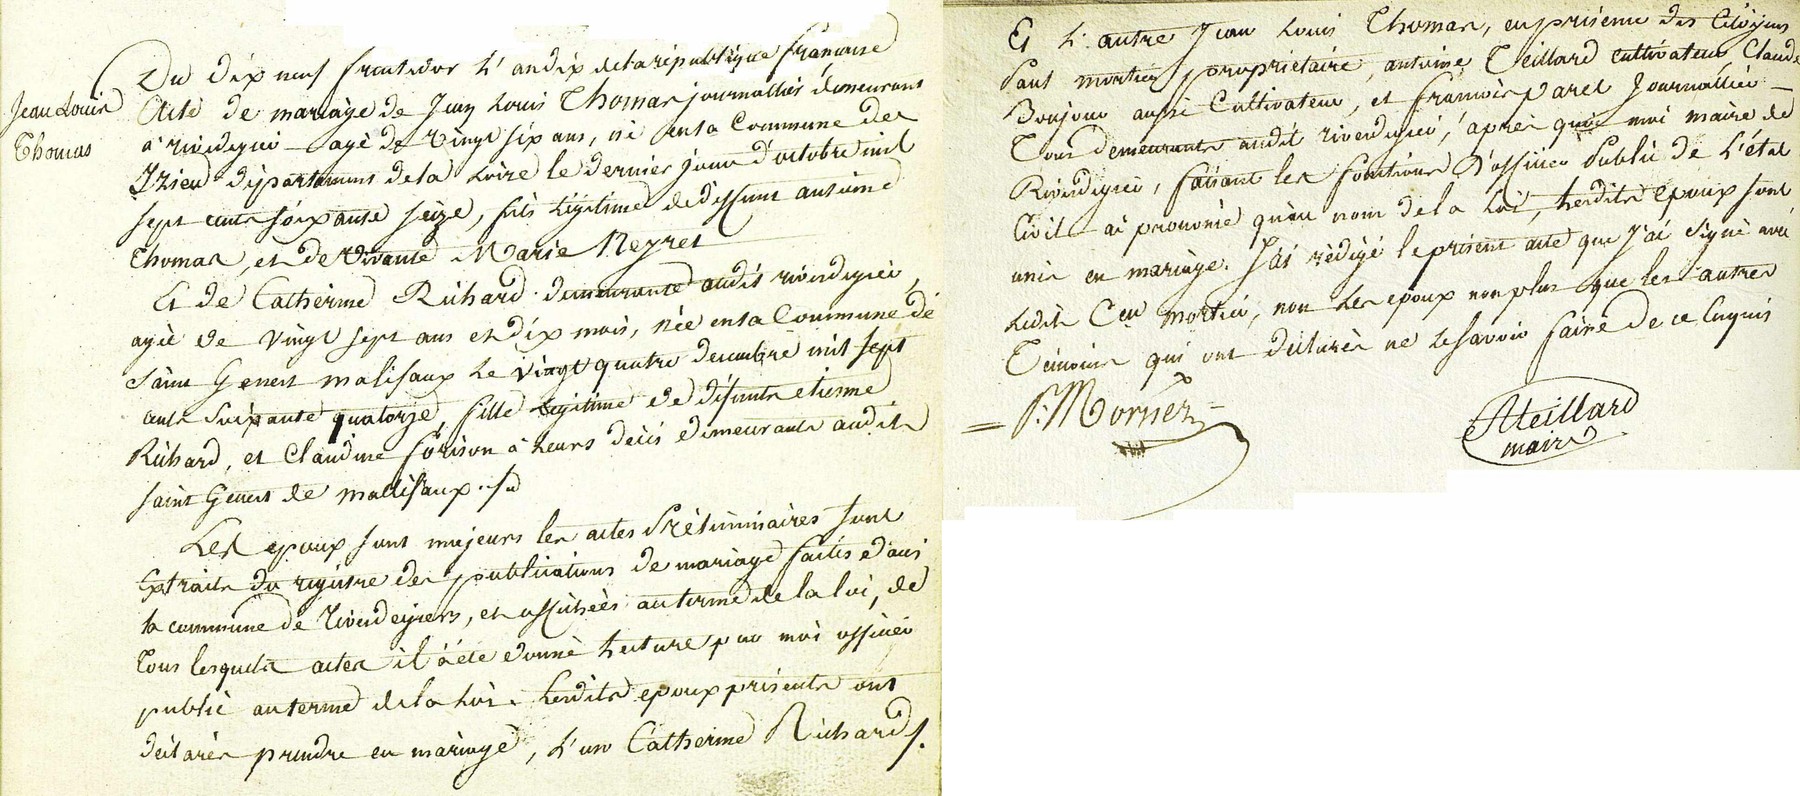 Jean Louis
Thomas
Du dix neuf fructidor L'an dix de la république française
Acte de mariage de Jean Louis Thomas journallier demeurant
a riverdegier agé de vingt six ans, né en la Commune de
Izieu département de la Loire le dernier jour d'octobre mil
sept cents soixante seize, fils légitime de deffunt antoine
Thomas, et de vivante Marie Neyret
Et de Catherine Richard demeurante audit riverdegier,
agée de vingt sept ans et dix mois, née en la Commune de
Saint Genest malifaux le vingt quatre decembre mil sept
cents soixante quatorze, fille légitime de défunts etienne
Richard, et Claudine forison à leurs décès demeurants audit
saint Genest de mallifaux
Les epoux sont majeurs les actes Préliminaires sont
Extraits du registre des publications de mariage faites dans
la commune de rivedegiers, et affichées au terme de la loi, de
Tous lesquels actes il a été donné lecture par moi officier
public au terme de la Loi. Lesdits epoux présents ont
déclarés prendre en mariage, L'un Catherine Richard
Et L'autre Jean Louis Thomas, en présence des Citoyens
Paul mortier propriétaire, antoine Teillard cultivateur, Claude
Bonjour aussi Cultivateur, et françois parel Journallier
Tous demeurants audit riverdegier, après quoi moi maire de
Riverdegier, faisant les fonctions D'officier Public de L'état
Civil ai prononcé qu'au nom de la Loi, lesdits epoux sont
unis en mariage. J'ai rédigé le présent acte que J'ai signé avec
Ledit Cen mortier, non les epoux non plus que les autres
Témoins qui ont déclarés ne le savoir faire de ce Enquis
P. Mortier
Teillard
maire